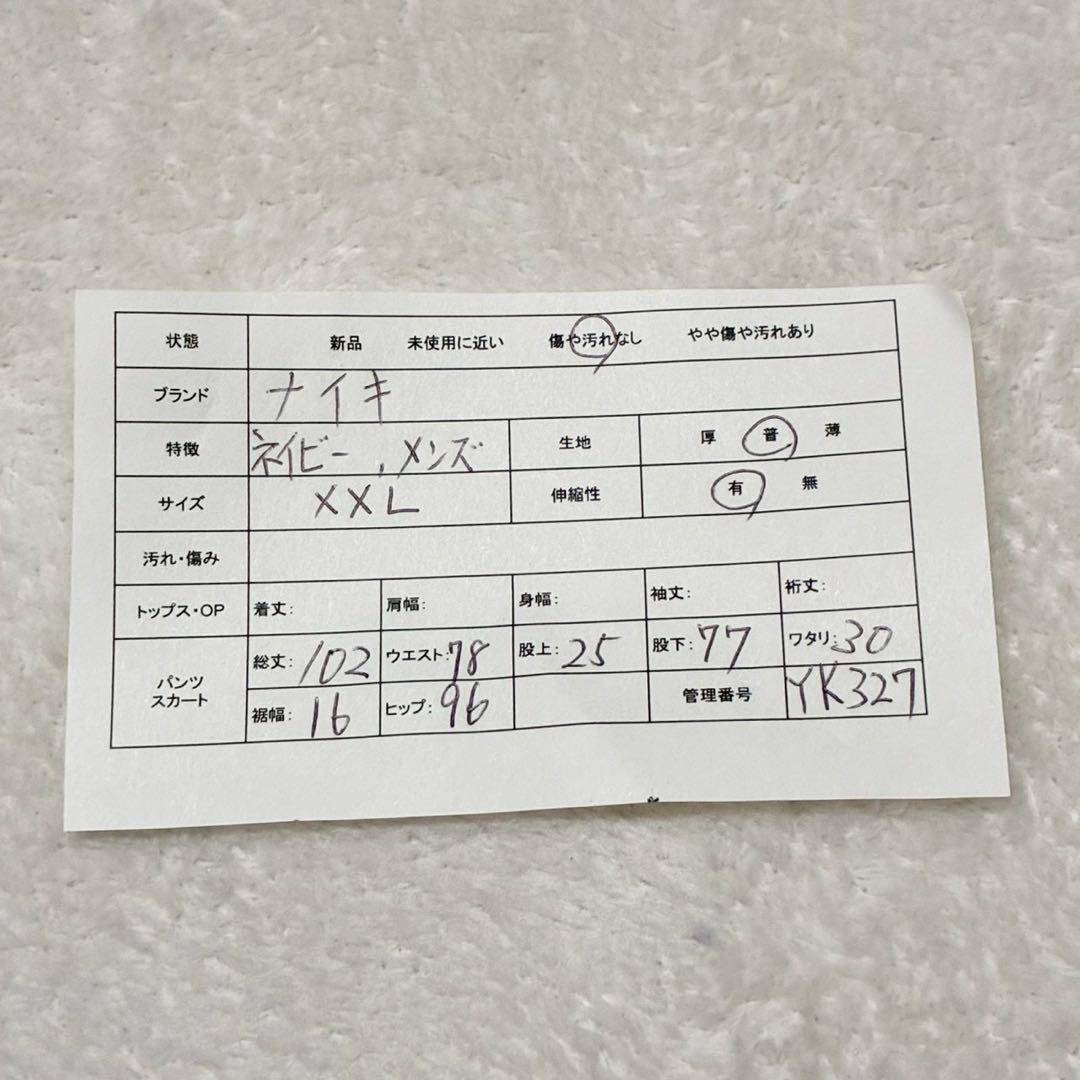 状態 新品 未使用に近い 傷や汚れなし やや傷や汚れあり
ブランド ナイキ
特徴 ネイビー,メンズ 生地 厚 普 薄
サイズ XXL 伸縮性 有 無
汚れ・傷み
トップス・OP 着丈: 肩幅: 身幅: 袖丈: 裄丈:
パンツ
スカート
総丈:102 ウエスト:78 股上:25 股下:77 ワタリ:30
裾幅:16 ヒップ:96 管理番号 YK327